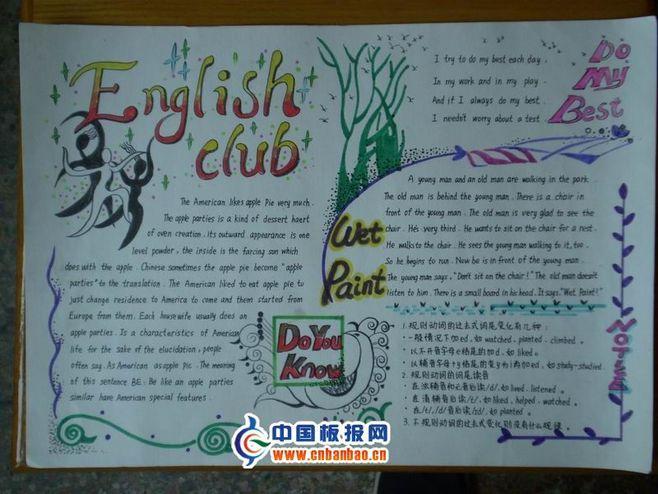 English
club
The American likes apple Pie very much.
The apple parties is a kind of dessert haert
of oven creation. its outward appearance is one
level powder, the inside is the farcing son which
does with the apple. Chinese sometimes the apple pie become "apple
parties" to the translation. The American liked to eat apple pie to
just change residence to America to come and them started from
Europe from them. Each housewife usually does an
apple parties. Is a characteristics of American
life for the sake of the elucidation, people
often say. As American as apple pie. The meaning
of this sentence BE: Be like an apple parties
similar have American special features.
Do You
Know
I try to do my best each day,
In my work and in my play.
And if I always do my best.
I needn't worry about a test.
Do
My
Best
Wet
Paint
A young man and an old man are walking in the park.
The old man is behind the young man. There is a chair in
front of the young man. The old man is very glad to see the
chair. He's very third. He wants to sit on the chair for a rest.
He walks to the chair. He sees the young man walking to it, too.
So he begins to run. Now he is in front of the young man.
The young man says, "Don't sit on the chair!" The old man doesn't
listen to him. There is a small board in his head. It says, "Wet Paint!"
1. 规则动词的过去式词尾变化有几种:
一般情况下加ed, 如 watched, planted, climbed.
以不发音字母e结尾的加d, 如 liked.
以辅音字母+y结尾的变y为i再加ed, 如 study-studied.
2. 规则动词的词尾读音
在浊辅音和元音后读/d/, 如 lived, listened.
在清辅音后读/t/, 如 liked, helped, watched.
在/t/, /d/音后读/id/, 如 planted.
3. 不规则动词的过去式变化则没有什么规律.
中国板报网
www.cnbanbao.cn